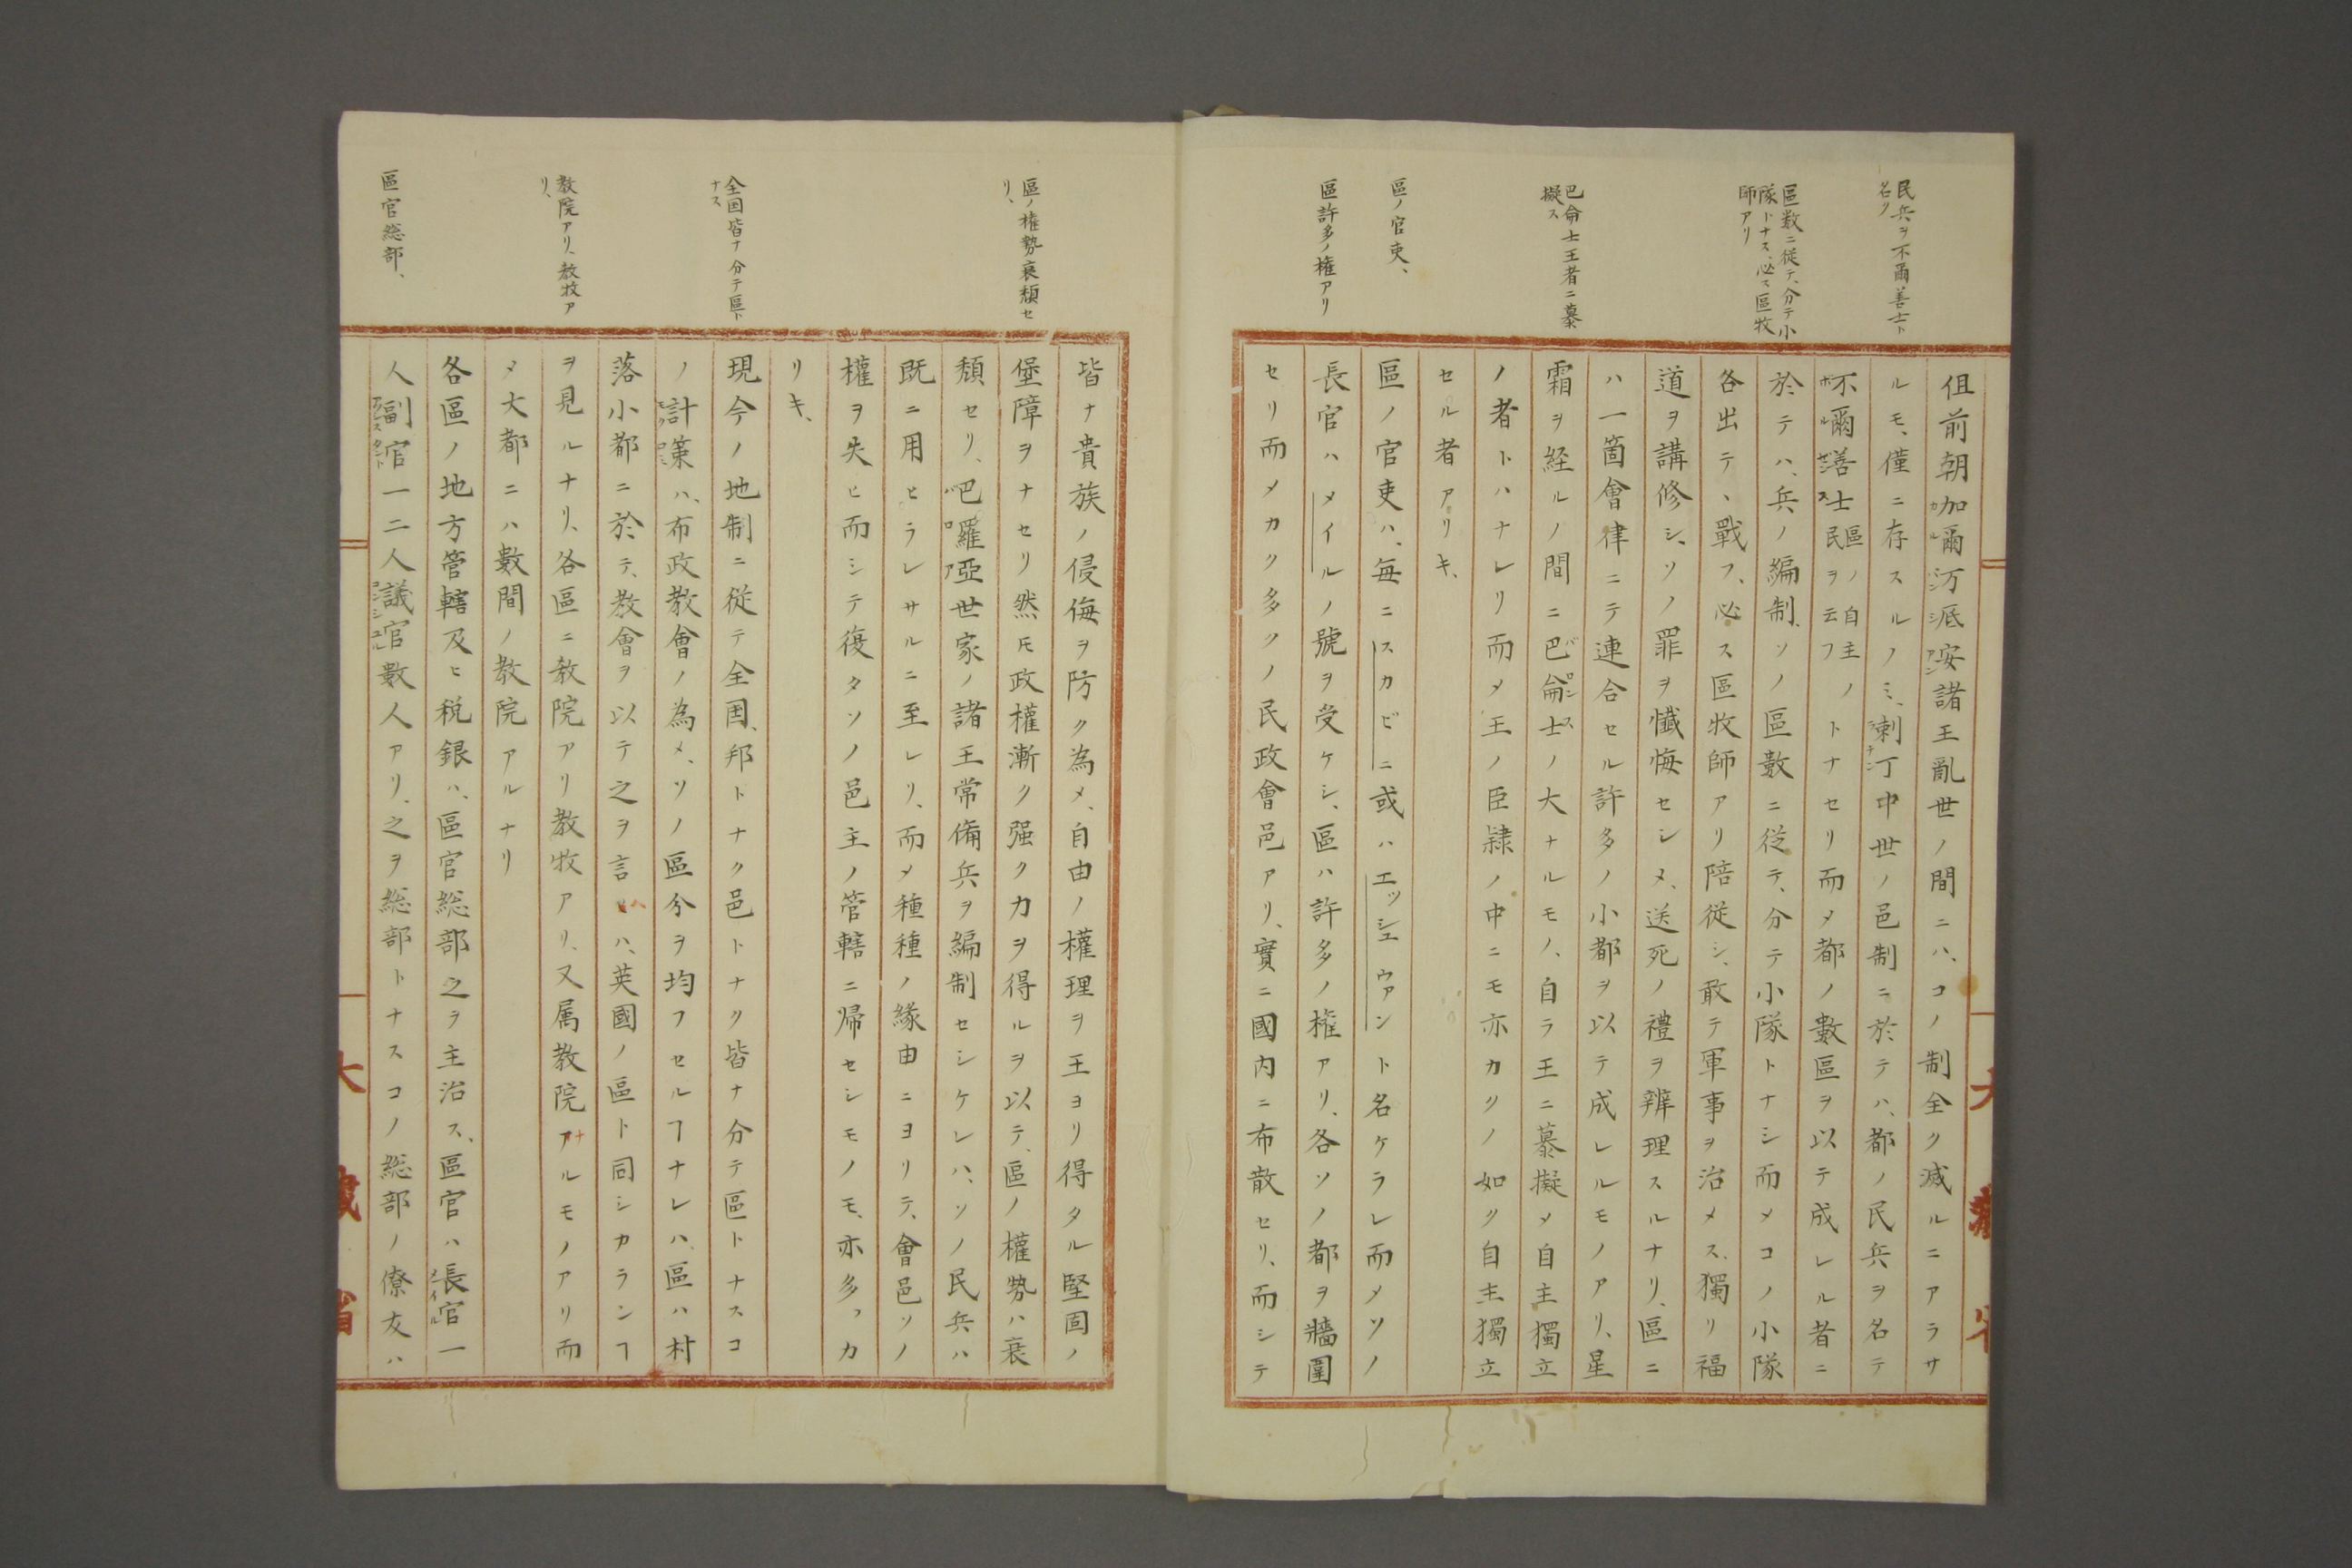 民兵ヲ不爾善士ト
名ク
區数ニ従テ、分テ小
隊トナス、必ス區牧
師アリ
巴侖士王者ニ摹
擬ス
區ノ官吏、
區許多ノ権アリ
伹前朝加爾沥派安諸王亂世ノ間ニハ、コノ制全ク滅ルニアラサ
ルモ、僅ニ存スルノミ、喇丁中世ノ邑制ニ於テハ、都ノ民兵ヲ名テ
不爾善士區ノ自主ノ民ヲ云フトナセリ而メ都ノ數區ヲ以テ成レル者ニ
於テハ、兵ノ編制、ソノ區數ニ従テ、分テ小隊トナシ而メコノ小隊
各出テ、戰フ、必ス區牧師アリ陪從シ、敢テ軍事ヲ治メス、獨リ福
道ヲ講修シ、ソノ罪ヲ懺悔セシメ、送死ノ禮ヲ辨理スルナリ、區ニ
ハ一箇會律ニテ連合セル許多ノ小都ヲ以テ成レルモノアリ、星
霜ヲ経ルノ間ニ巴侖士ノ大ナルモノ、自ラ王ニ摹擬メ自主獨立
ノ者トハナレリ而メ王ノ臣隷ノ中ニモ亦カクノ如ク自主獨立
セル者アリキ、
區ノ官吏ハ、毎ニスカビニ或ハエッシュウァント名ケラレ而メソノ
長官ハメイルノ號ヲ受ケシ、區ハ許多ノ権アリ、各ソノ都ヲ牆圍
セリ而メカク多クノ民政會邑アリ、實ニ國内ニ布散セリ、而シテ
大藏省
區ノ權勢衰頽セ
リ、
全国皆ナ分テ區ト
ナス
教院アリ、教牧ア
リ、
區官総部、
皆ナ貴族ノ侵侮ヲ防ク為メ、自由ノ權理ヲ王ヨリ得タル堅固ノ
堡障ヲナセリ然モ政權漸ク强ク力ヲ得ルヲ以テ、區ノ權勢ハ衰
頽セリ、巴羅亞世家ノ諸王常備兵ヲ編制セシケレハ、ソノ民兵ハ
既ニ用ヒラレサルニ至レリ、而メ種種ノ縁由ニヨリテ、會邑ソノ
權ヲ失ヒ而シテ復タソノ邑主ノ管轄ニ帰セシモノモ、亦多フカ
リキ、
現今ノ地制ニ従テ全国、邦トナク邑トナク皆ナ分テ區トナスコ
ノ計策ハ、布政教會ノ為メ、ソノ區分ヲ均フセルヿナレハ、區ハ村
落小都ニ於テ、教會ヲ以テ之ヲ言ハハ、英國ノ區ト同シカランヿ
ヲ見ルナリ、各區ニ教院アリ教牧アリ、又属教院ナルモノアリ而
メ大都ニハ數間ノ教院アルナリ
各區ノ地方管轄及ヒ税銀ハ、區官総部之ヲ主治ス、區官ハ長官一
人副官一二人議官數人アリ、之ヲ総部トナスコノ総部ノ僚友ハ
大藏省